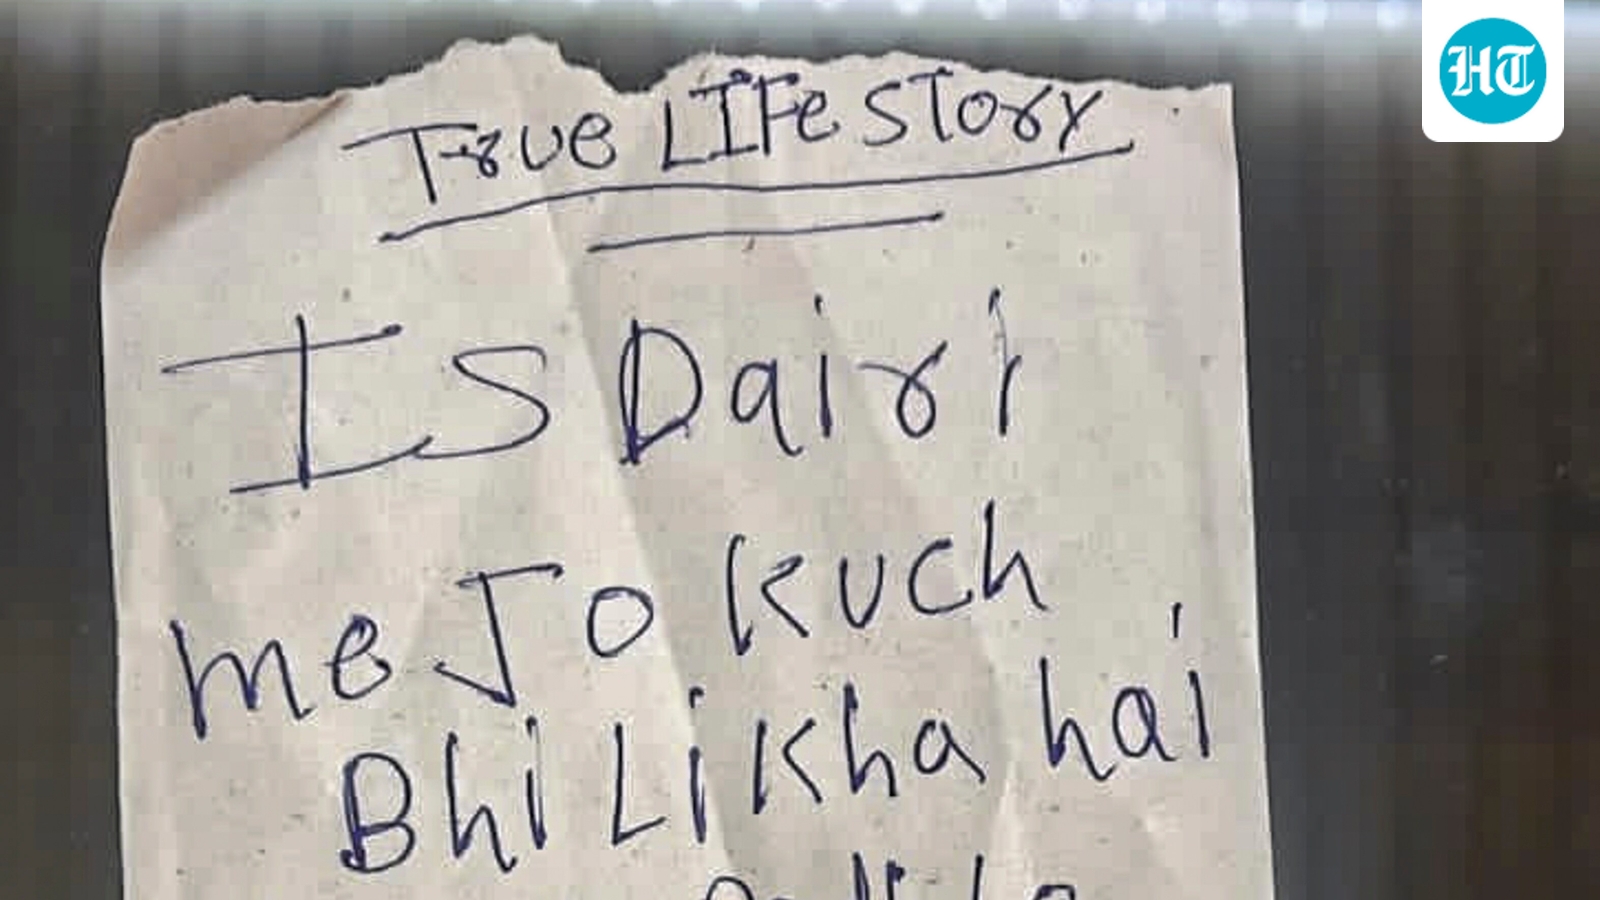 HT
True LIFe STory
Is Dairi
me Jo kuch
Bhi Likha hai